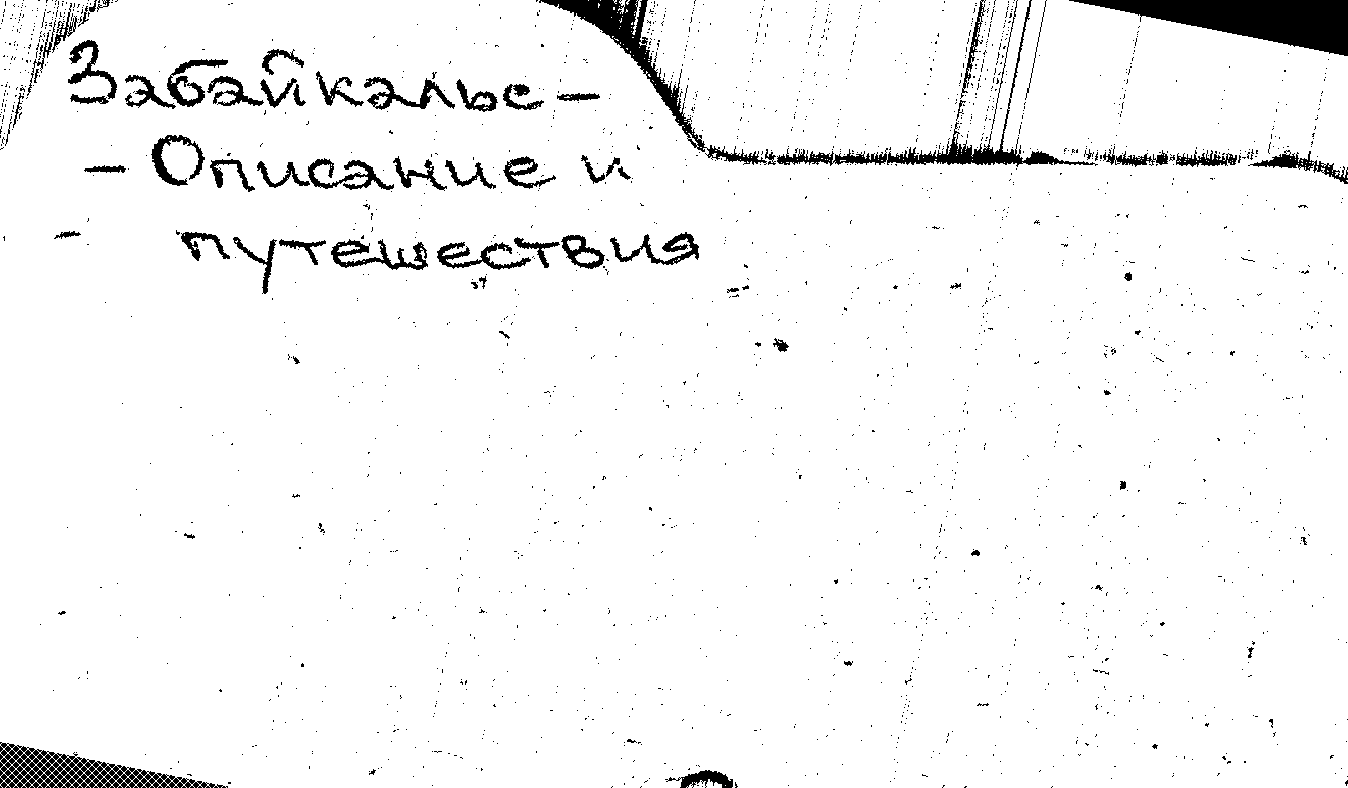 Забайкалье –
– Описание и
– путешествия